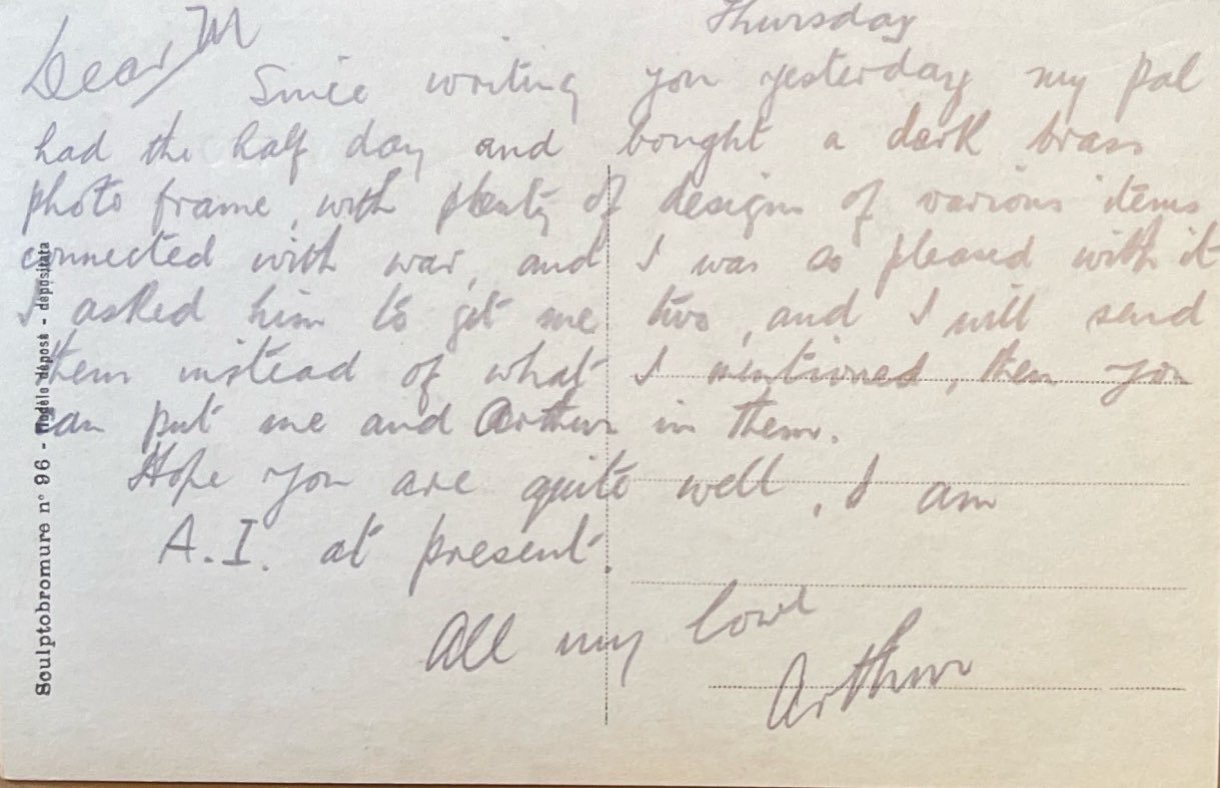 Thursday
Dear M
Since writing you yesterday my pal
had the half day and bought a dark brass
photo frame, with plenty of designs of various items
connected with war, and I was so pleased with it
I asked him to get me two, and I will send
them instead of what I mentioned, then you
can put me and Arthur in them.
Hope you are quite well, I am
A.I. at present.
All my love
Arthur
Sculptobromure n° 96 - Modèle déposé - depositata